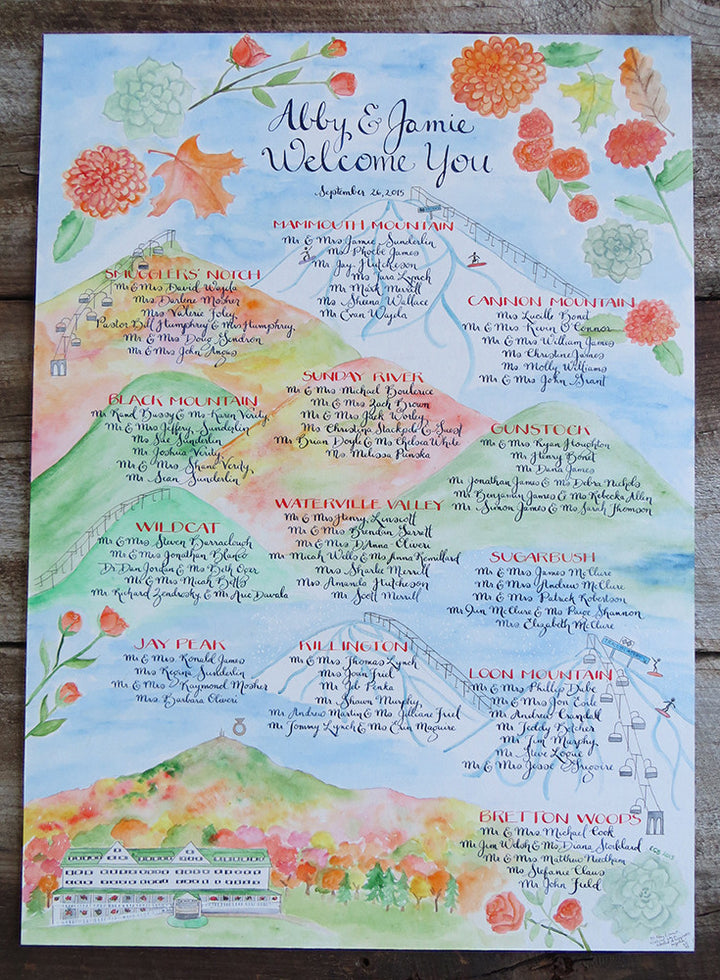 Abby & Jamie
Welcome You
September 26, 2015
MAMMOUTH MOUNTAIN
Mr & Mrs Jamie Sunderlin
Ms Phoebe James
Mr Jay Hutcheson
Ms Tara Lynch
Mr Mark Merrill
Ms Sheena Wallace
Mr Evan Wajda
SMUGGLERS' NOTCH
Mr & Mrs David Wajda
Mrs Darlene Mosher
Mrs Valerie Foley
Pastor Bill Humphrey & Mrs Humphrey
Mr & Mrs Doug Gendron
Mr & Mrs John Angus
CANNON MOUNTAIN
Mrs Lucille Bonet
Mr & Mrs Kevin O'Connor
Mr & Mrs William James
Ms Christine James
Ms Molly Williams
Mr & Mrs John Grant
BLACK MOUNTAIN
Mr Rand Bussey & Ms Karen Verity
Mr & Mrs Jeffery Sunderlin
Ms Sue Sunderlin
Mr Joshua Verity
Mr & Mrs Shane Verity
Mr Sean Sunderlin
SUNDAY RIVER
Mr & Mrs Michael Bouderice
Mr & Mrs Zach Brown
Mr & Mrs Jack Worley
Ms Christina Stackpole & Guest
Mr Brian Doyle & Ms Chelsea White
Ms. Melissa Penska
GUNSTOCK
Mr & Mrs Ryan Houghton
Mr Henry Bonet
Mr Dana James
Mr Jonathan James & Ms Debra Nichols
Mr Benjamin James & Ms Rebecka Allen
Mr Simon James & Ms Sarah Thomson
WILDCAT
Mr & Mrs Steven Barraclough
Mr & Mrs Jonathan Blanco
Dr Dan Jordan & Ms Beth Oger
Mr & Mrs Micah Betts
Mr Richard Zendrosky & Mr Aric Davala
WATERVILLE VALLEY
Mr & Mrs Henry Linscott
Mr & Mrs Brendan Garrett
Mr & Mrs D'Anna Oliveri
Mr Micah Wells & Ms Anna Remillard
Mrs Sharlie Merrill
Mrs Amanda Hutcheson
Mr Scott Merrill
SUGARBUSH
Mr & Mrs James McClure
Mr & Mrs Andrew McClure
Mr & Mrs Patrick Robertson
Mr Jim McClure & Ms Paige Shannon
Mrs Elizabeth McClure
JAY PEAK
Mr & Mrs Ronald James
Mrs Regina Sunderlin
Mr & Mrs Raymond Mosher
Mrs Barbara Oliveri
KILLINGTON
Mr & Mrs Thomas Lynch
Mrs Joan Friel
Mr Job Penka
Mr Shawn Murphy
Mr Andrew Martin & Ms Jilliane Friel
Mr Tommy Lynch & Ms Erin Maguire
LOON MOUNTAIN
Mr & Mrs Phillip Dube
Mr & Mrs Jon Coile
Mr Andrew Crandall
Mr Teddy Betcher
Mr Tim Murphy
Mr Steve Logue
Mr & Mrs Jesse Gregoire
BRETTON WOODS
Mr & Mrs Michael Cook
Mr Jim Welsh & Ms Diana Stoddard
Mr & Mrs Matthew Needham
Ms Stefanie Claus
Mr John Field